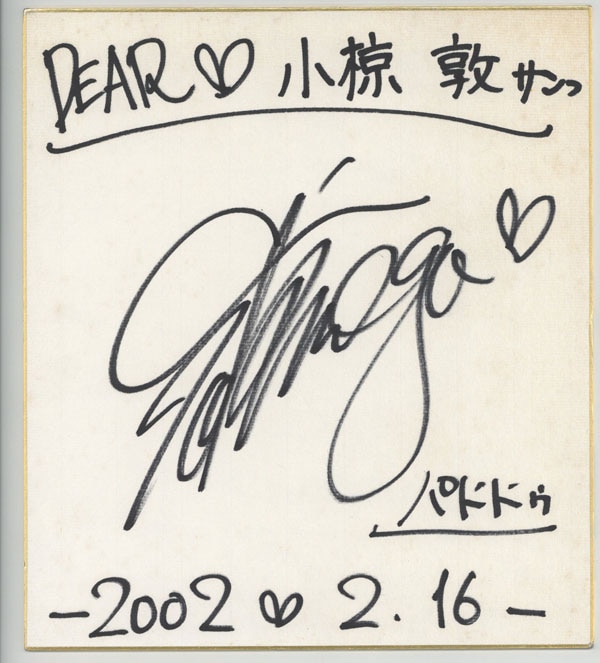 DEAR♡ 小椋 敦 サンっ
パドドゥ
-2002♡2.16-